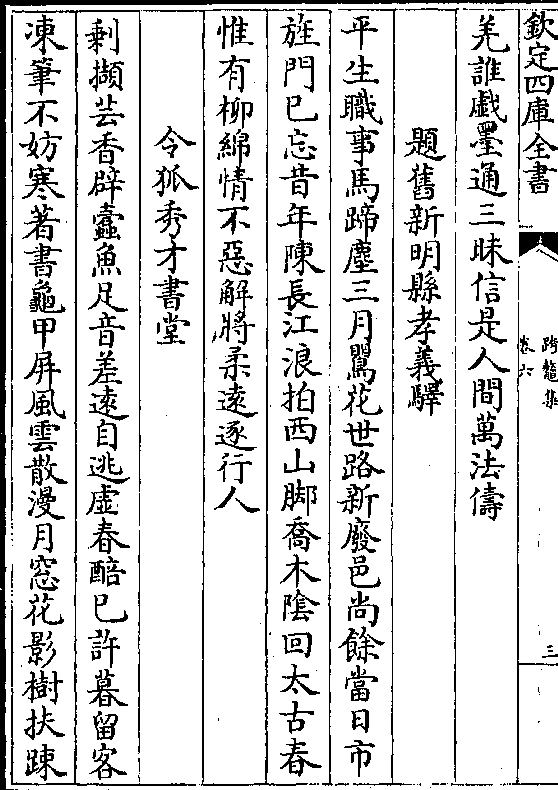 欽定四庫全書
跨鼇集
卷六
三
羌誰戯墨通三昧信是人間萬法儔
題舊新明縣孝義驛
平生職事馬蹄塵三月鸎花世路新廢邑尚餘當日市
旌門已忘昔年陳長江浪拍西山脚喬木陰回太古春
惟有柳綿情不惡解將柔遠逐行人
令狐秀才書堂
剩擷芸香辟蠧魚足音差遠自逃虛春醅已許暮留客
凍筆不妨寒著書龜甲屏風雲散漫月窓花影樹扶踈